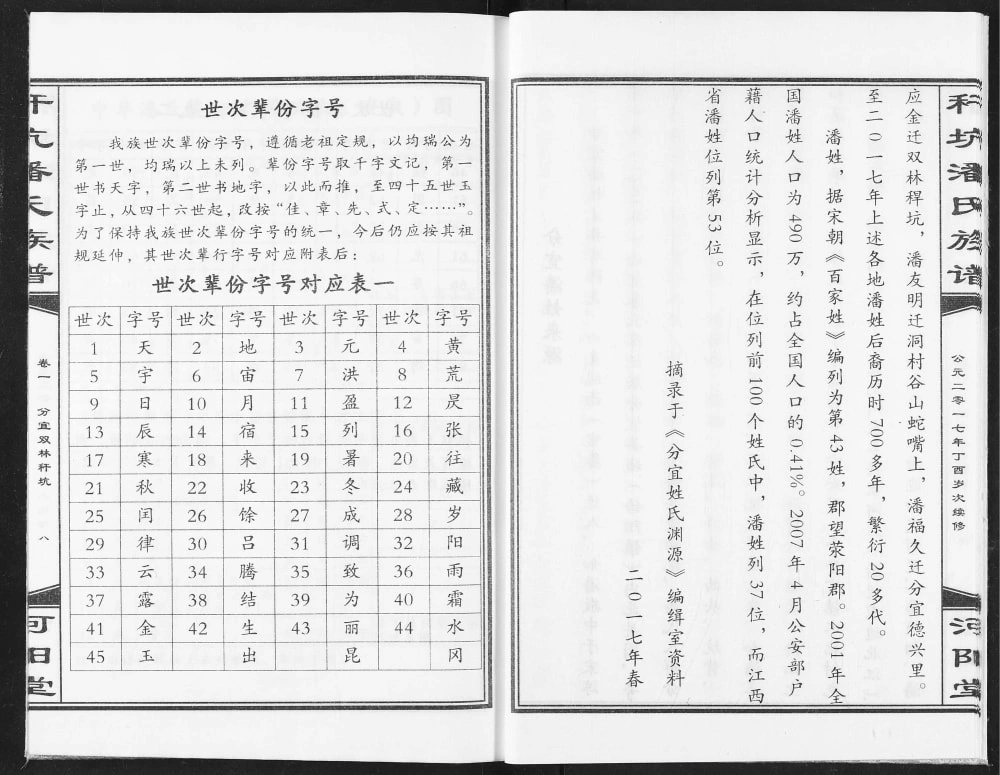 秆坑潘氏族谱
公元二零一七年丁酉岁次续修
河阳堂
应金迁双林稈坑，潘友明迁洞村谷山蛇嘴上，潘福久迁分宜德兴里。
至二０一七年上述各地潘姓后裔历时700多年，繁衍20多代。
潘姓，据宋朝《百家姓》编列为第43姓，郡望荥阳郡。2001年全
国潘姓人口为490万，约占全国人口的0.41%。2007年4月公安部户
籍人口统计分析显示，在位列前100个姓氏中，潘姓列37位，而江西
省潘姓位列第53位。
摘录于《分宜姓氏渊源》编缉室资料
二０一七年春
世次辈份字号
我族世次辈份字号，遵循老祖定规，以均瑞公为
第一世，均瑞以上未列。辈份字号取千字文记，第一
世书天字，第二世书地字，以此而推，至四十五世玉
字止，从四十六世起，改按“佳、章、先、式、定……”。
为了保持我族世次辈份字号的统一，今后仍应按其祖
规延伸，其世次辈行字号对应附表后：
世次辈份字号对应表一
世次 字号 世次 字号 世次 字号 世次 字号
1 天 2 地 3 元 4 黄
5 宇 6 宙 7 洪 8 荒
9 日 10 月 11 盈 12 昃
13 辰 14 宿 15 列 16 张
17 寒 18 来 19 暑 20 往
21 秋 22 收 23 冬 24 藏
25 闰 26 馀 27 成 28 岁
29 律 30 吕 31 调 32 阳
33 云 34 腾 35 致 36 雨
37 露 38 结 39 为 40 霜
41 金 42 生 43 丽 44 水
45 玉 出 昆 冈
卷一 分宜双林秆坑 八